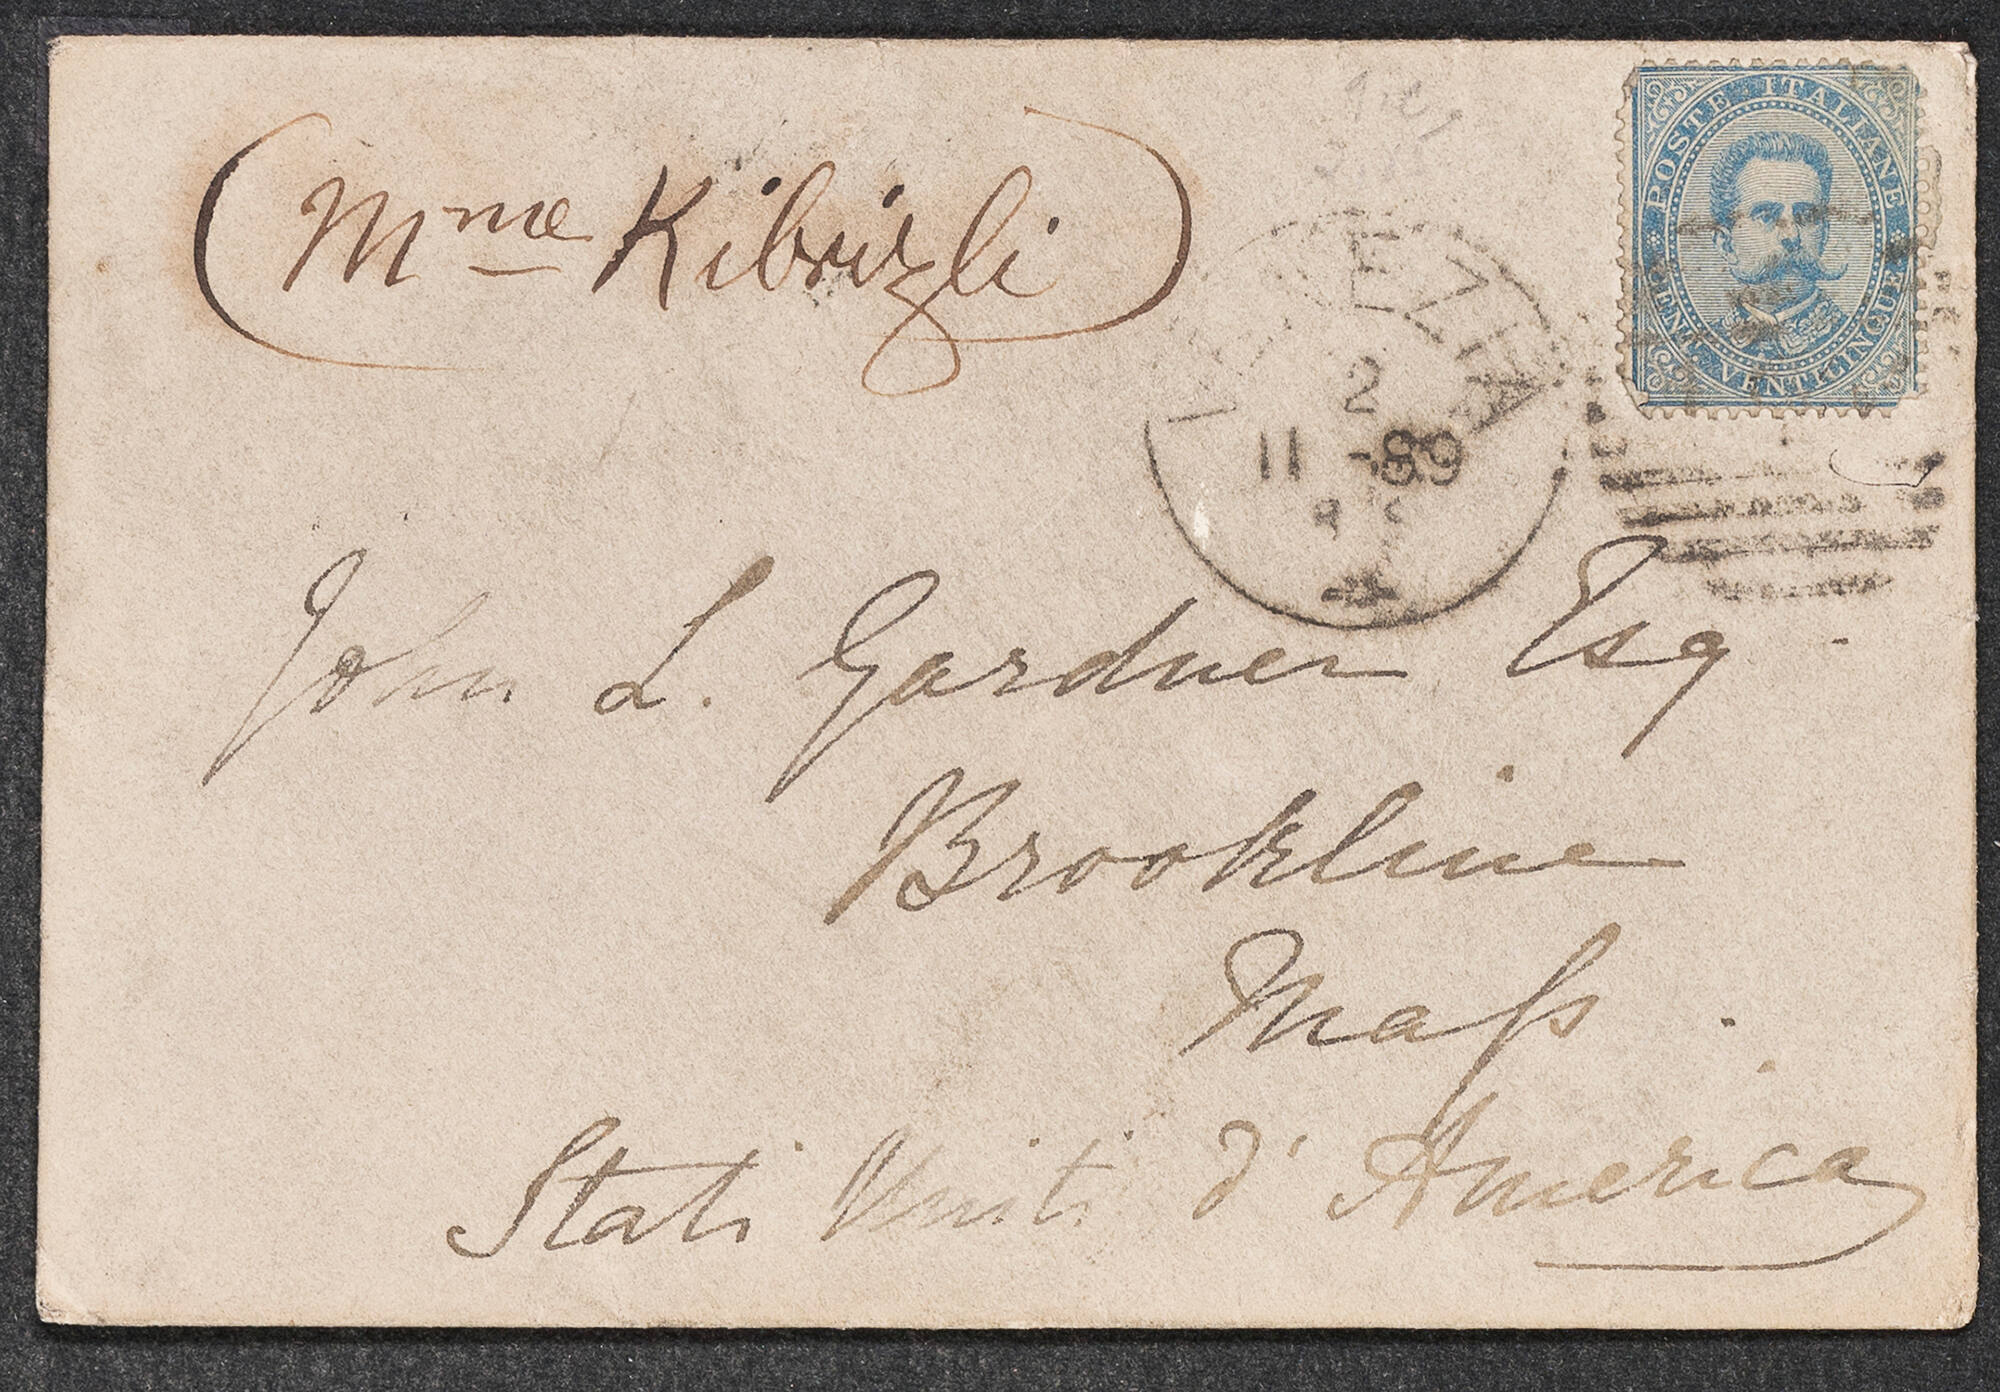 (Mme Kibrizli)
POSTE ITALIANE
CENT. VENTICINQUE
VENEZIA
2
11 - 89
John L. Gardner Esq
Brookline
Mass.
Stati Uniti d'America